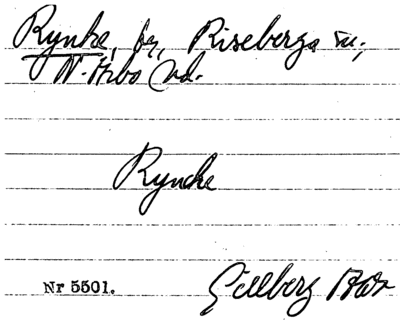 Rynke, by, Riseberga sn;
N. Åsbo hd.
Ryncke
Nr 5501. Gillberg